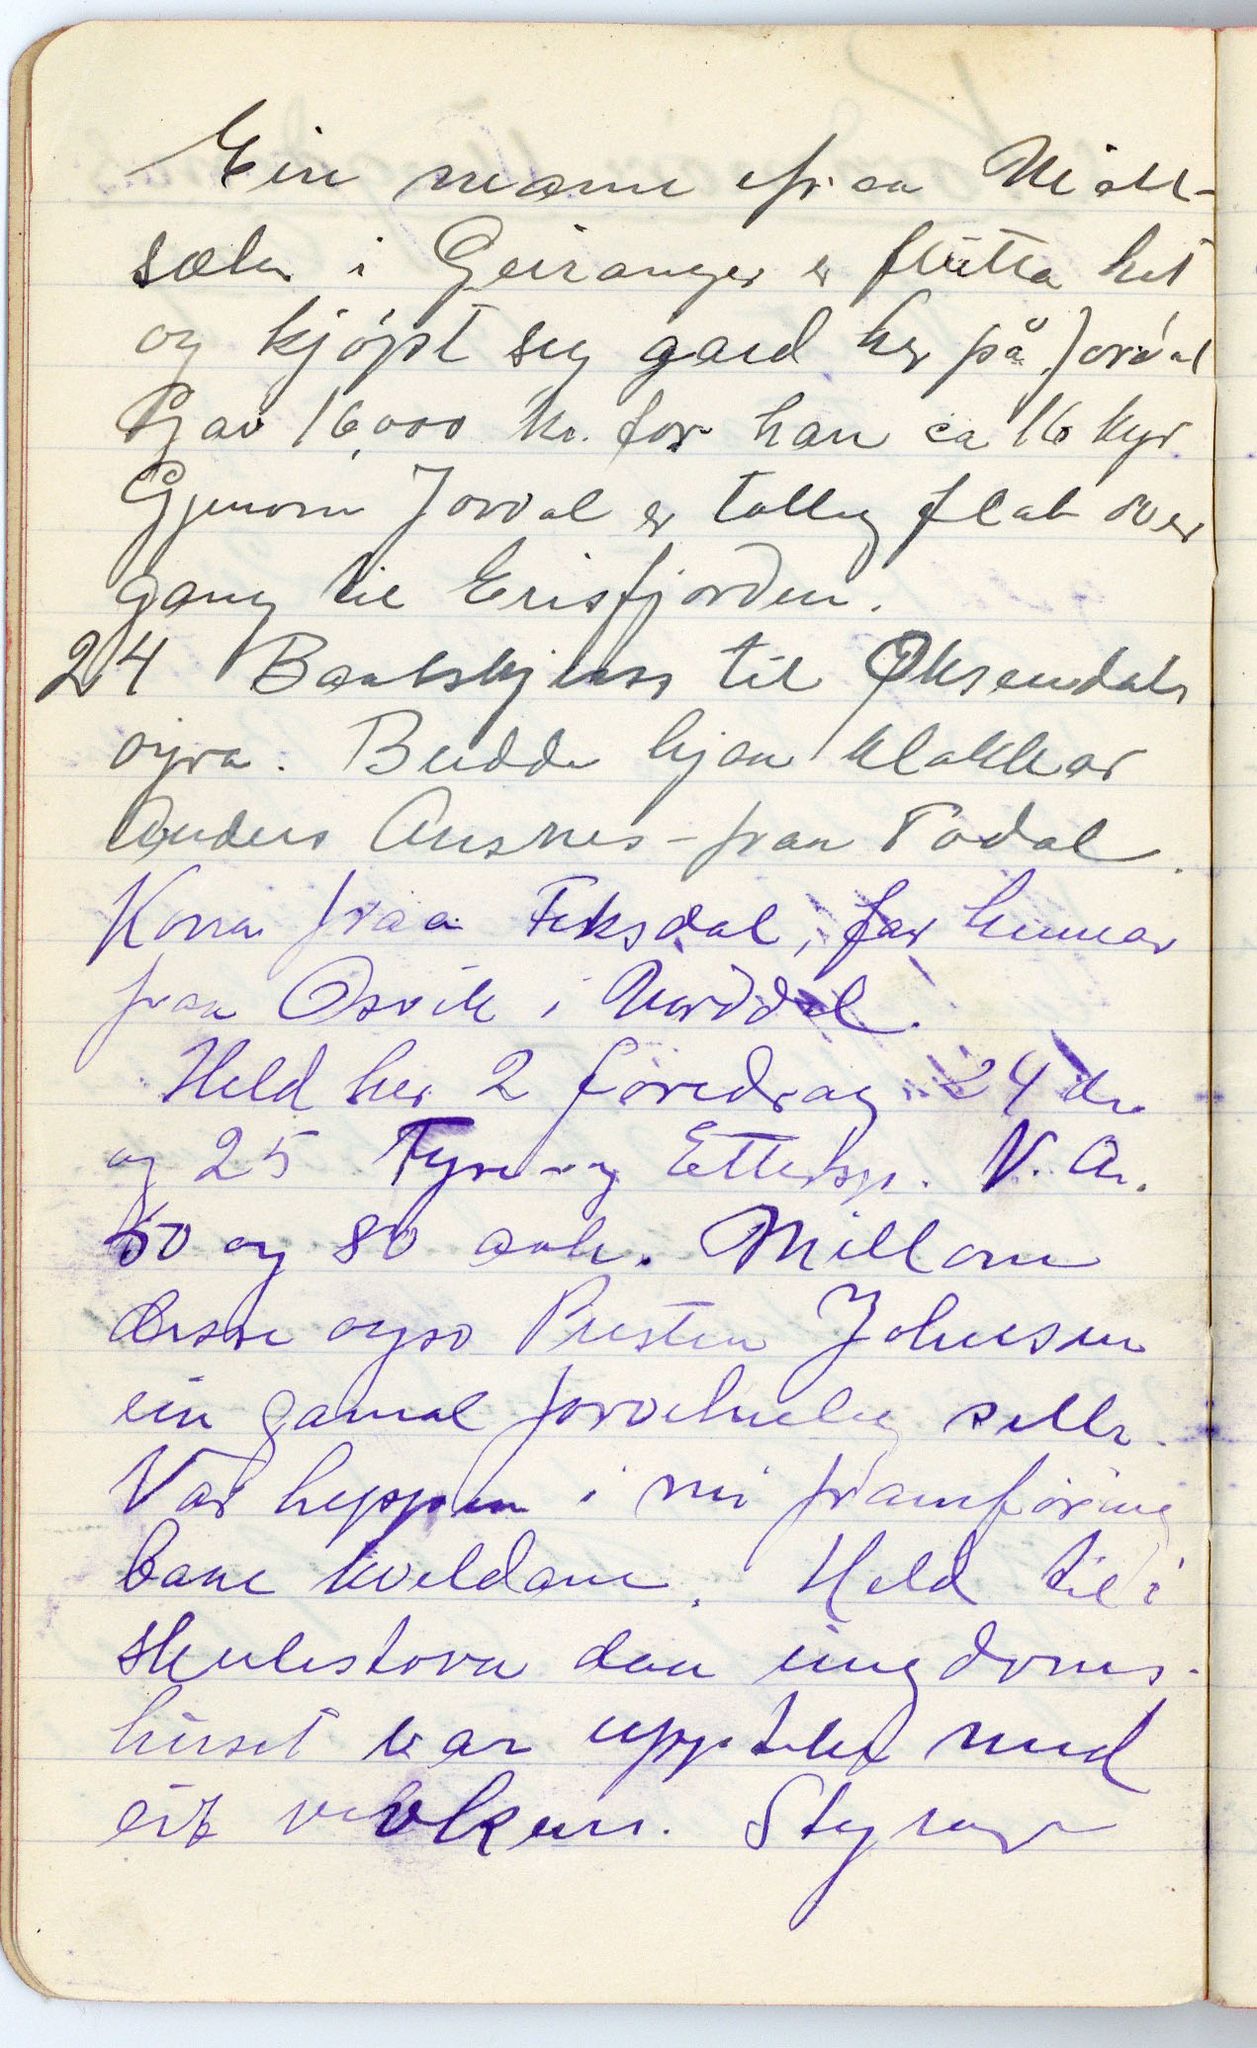 Ein mann fraa Möll-
sæter i Geiranger er flutta hit
og kjöpt seg gard her på Jordal
Gav 16,000 kr. for han ca 16 kyr
Gjenom Jordal er tolleg flat over
gang til Erisfjorden.
24 Baatskjuss til Øksendals
øyra. Budde hjaa klokkar
Anders Ansnes - fraa Todal.
Kona fraa Fiksdal, far hennar
fraa Osvik i Norddal.
Held her 2 foredrag 24 de
og 25 Fyre- og Ettersp. N. A.
50 og 80 aah. Millom
desse ogso Presten Johnsen
ein gamal forvitneleg
Var heppen i mi framföring
baae kveldane. Held til i
skulestova daa ungdoms-
huset var uppteke med
eit Styrar